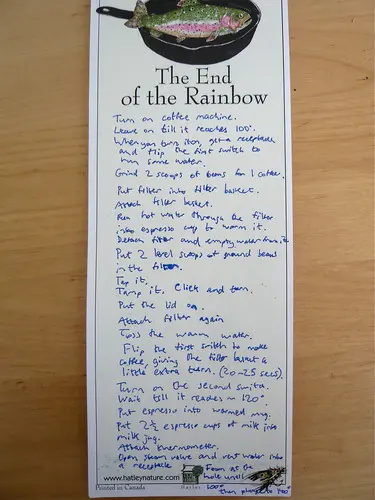 The End
of the Rainbow
Turn on coffee machine.
Leave on till it reaches 100°.
When you turn it on, get a receptacle
and flip the first switch to
run some water.
Grind 2 scoops of beans for 1 coffee.
Put filter into filter basket.
Attach filter basket.
Run hot water through the filter
into espresso cup to warm it.
Detach filter and empty water from it
Put 2 level scoops of ground beans
in the filter.
Tap it.
Tamp it. Click and turn.
Put the lid on.
Attach filter again
Toss the warm water.
Flip the first switch to make
coffee, giving the filter basket a
little extra turn. (20-25 secs).
Turn on the second switch.
Wait till it reaches ~ 120°
Put espresso into warmed mug.
Put 2½ espresso cups of milk into
milk jug.
Attach thermometer.
Open steam valve and vent water into
a receptacle
Foam at the
hole until
100°
then plunge to 140°
www.hatleynature.com
Hatley
Printed in Canada